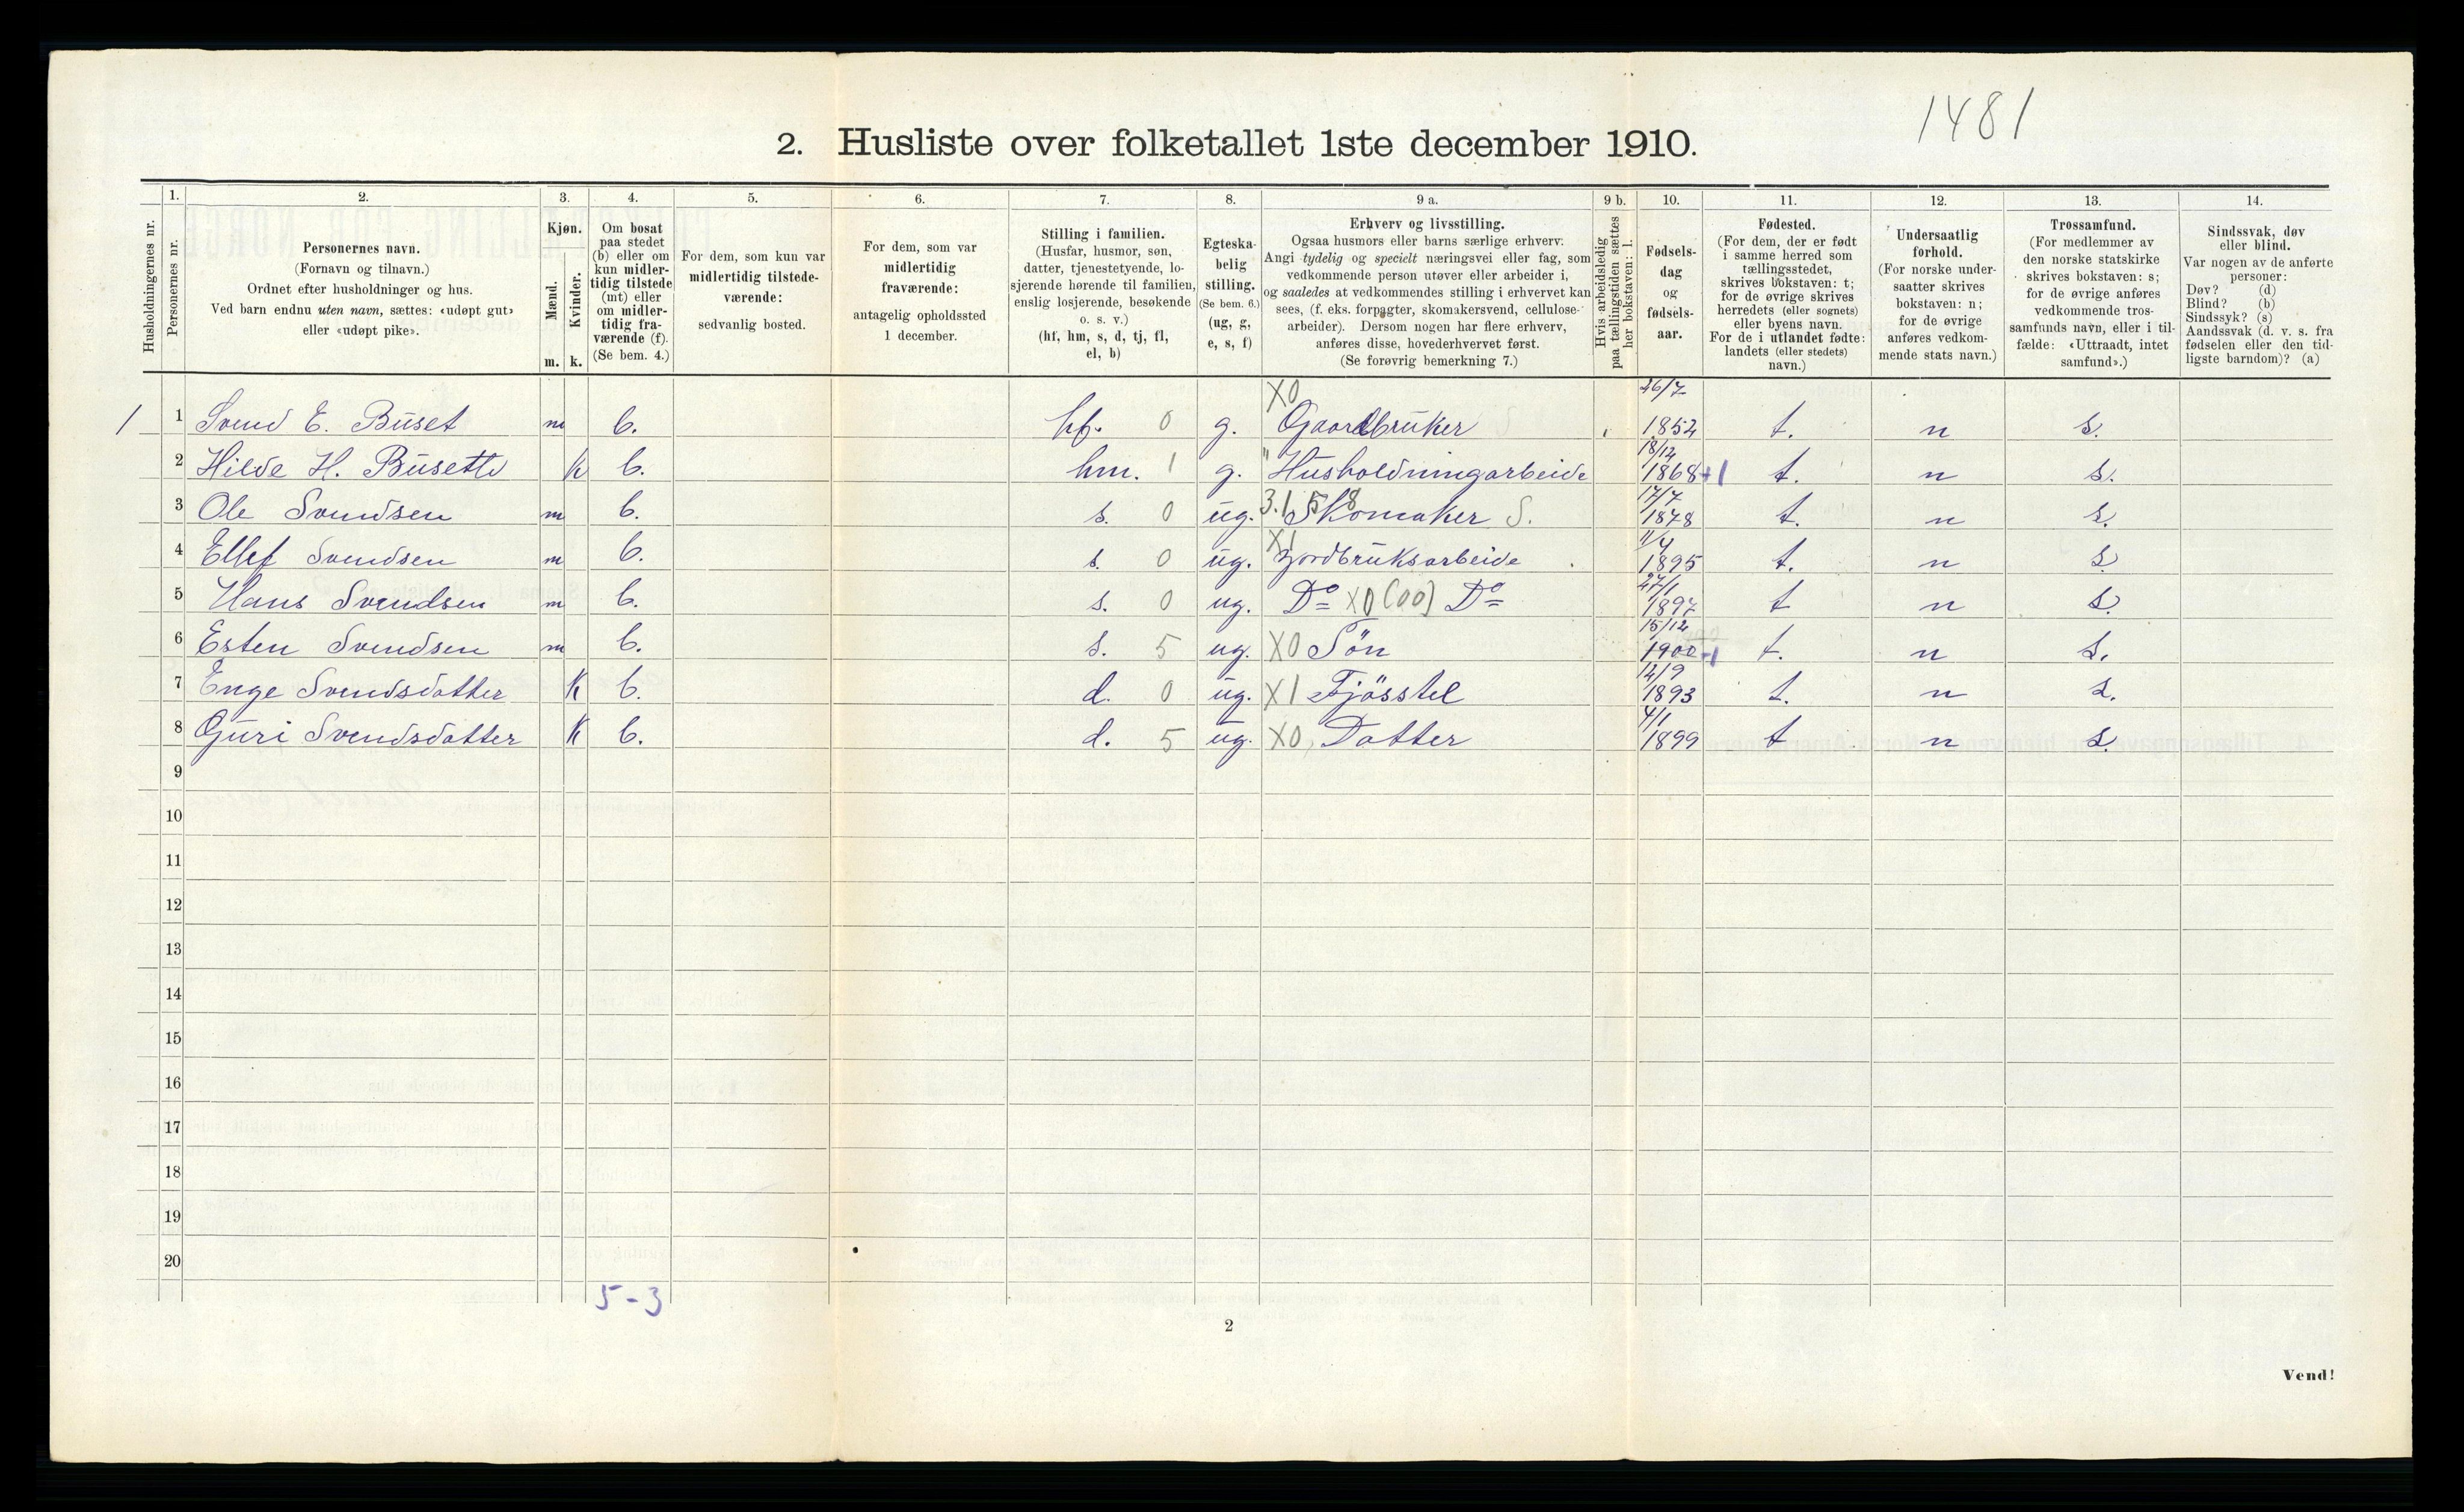 1481
2. Husliste over folketallet 1ste december 1910.
Husholdningernes nr.
1.
Personernes nr.
2.
Personernes navn.
(Fornavn og tilnavn.)
Ordnet efter husholdninger og hus.
Ved barn endnu uten navn, sættes: «udøpt gut»
eller «udøpt pike».
3.
Kjøn.
Mænd.
Kvinder.
m. k.
4.
Om bosat
paa stedet
(b) eller om
kun midler-
tidig tilstede
(mt) eller
om midler-
tidig fra-
værende (f).
(Se bem. 4.)
5.
For dem, som kun var
midlertidig tilstede-
værende:
sedvanlig bosted.
6.
For dem, som var
midlertidig
fraværende:
antagelig opholdssted
1 december.
7.
Stilling i familien.
(Husfar, husmor, søn,
datter, tjenestetyende, lo-
sjerende hørende til familien,
enslig losjerende, besøkende
o. s. v.)
(hf, hm, s, d, tj, fl,
el, b)
8.
Egteska-
belig
stilling.
(Se bem. 6.)
(ug, g,
e, s, f)
9 a.
Erhverv og livsstilling.
Ogsaa husmors eller barns særlige erhverv.
Angi tydelig og specielt næringsvei eller fag, som
vedkommende person utøver eller arbeider i,
og saaledes at vedkommendes stilling i erhvervet kan
sees, (f. eks. forpagter, skomakersvend, cellulose-
arbeider). Dersom nogen har flere erhverv,
anføres disse, hovederhvervet først.
(Se forøvrig bemerkning 7.)
9 b.
Hvis arbeidsledig
paa tællingstiden sættes
her bokstaven: l.
10.
Fødsels-
dag
og
fødsels-
aar.
11.
Fødested.
(For dem, der er født
i samme herred som
tællingsstedet,
skrives bokstaven: t;
for de øvrige skrives
herredets (eller sognets)
eller byens navn.
For de i utlandet fødte:
landets (eller stedets)
navn.)
12.
Undersaatlig
forhold.
(For norske under-
saatter skrives
bokstaven: n;
for de øvrige
anføres vedkom-
mende stats navn.)
13.
Trossamfund.
(For medlemmer av
den norske statskirke
skrives bokstaven: s;
for de øvrige anføres
vedkommende tros-
samfunds navn, eller i til-
fælde: «Uttraadt, intet
samfund».)
14.
Sindssvak, døv
eller blind.
Var nogen av de anførte
personer:
Døv? (d)
Blind? (b)
Sindssyk? (s)
Aandssvak (d. v. s. fra
fødselen eller den tid-
ligste barndom)? (a)
X0 26/7
1 1 Svend E. Buset m b. hf. 0 g. Gaardbruker 1852 t. n s.
18/12
2 Hilde H. Busett k b. hm. 1 g. "Husholdningarbeide 1868+1 t. n s.
3.1 5 8 17/7
3 Ole Svendsen m b. s. 0 ug. Skomaker S. 1878 t. n s.
X1 11/4
4 Ellef Svendsen m b. s. 0 ug. Jordbruksarbeide 1895 t. n s
27/1
5 Hans Svendsen m b. s. 0 ug. Do X0 (00) Do 1897 t n s.
15/12
6 Esten Svendsen m b. s. 5 ug. X0 Sön 1900-1 t. n s.
12/9
7 Enge Svendsdatter K b. d. 0 ug. X1 Fjösstel 1893 t. n s.
4/1
8 Guri Svendsdatter K b. d. 5 ug. X0, Datter 1899 t n s.
9
10
11
12
13
14
15
16
17
18
19
20
5-3
2
Vend!